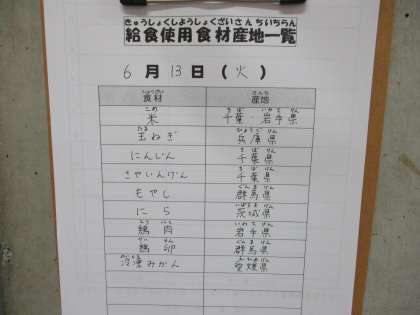 きゅうしょくしようしょくざいさんちいちらん
給食使用食材産地一覧
6月13日(火)
しょくざい さんち
食材 産地
こめ ちば いわてけん
米 千葉・岩手県
たま ひょうごけん
玉ねぎ 兵庫県
ちばけん
にんじん 千葉県
ちばけん
さやいんげん 千葉県
ぐんまけん
もやし 群馬県
いばらきけん
にら 茨城県
とりにく いわてけん
鶏肉 岩手県
けいらん ぐんまけん
鶏卵 群馬県
れいとう えひめけん
冷凍みかん 愛媛県